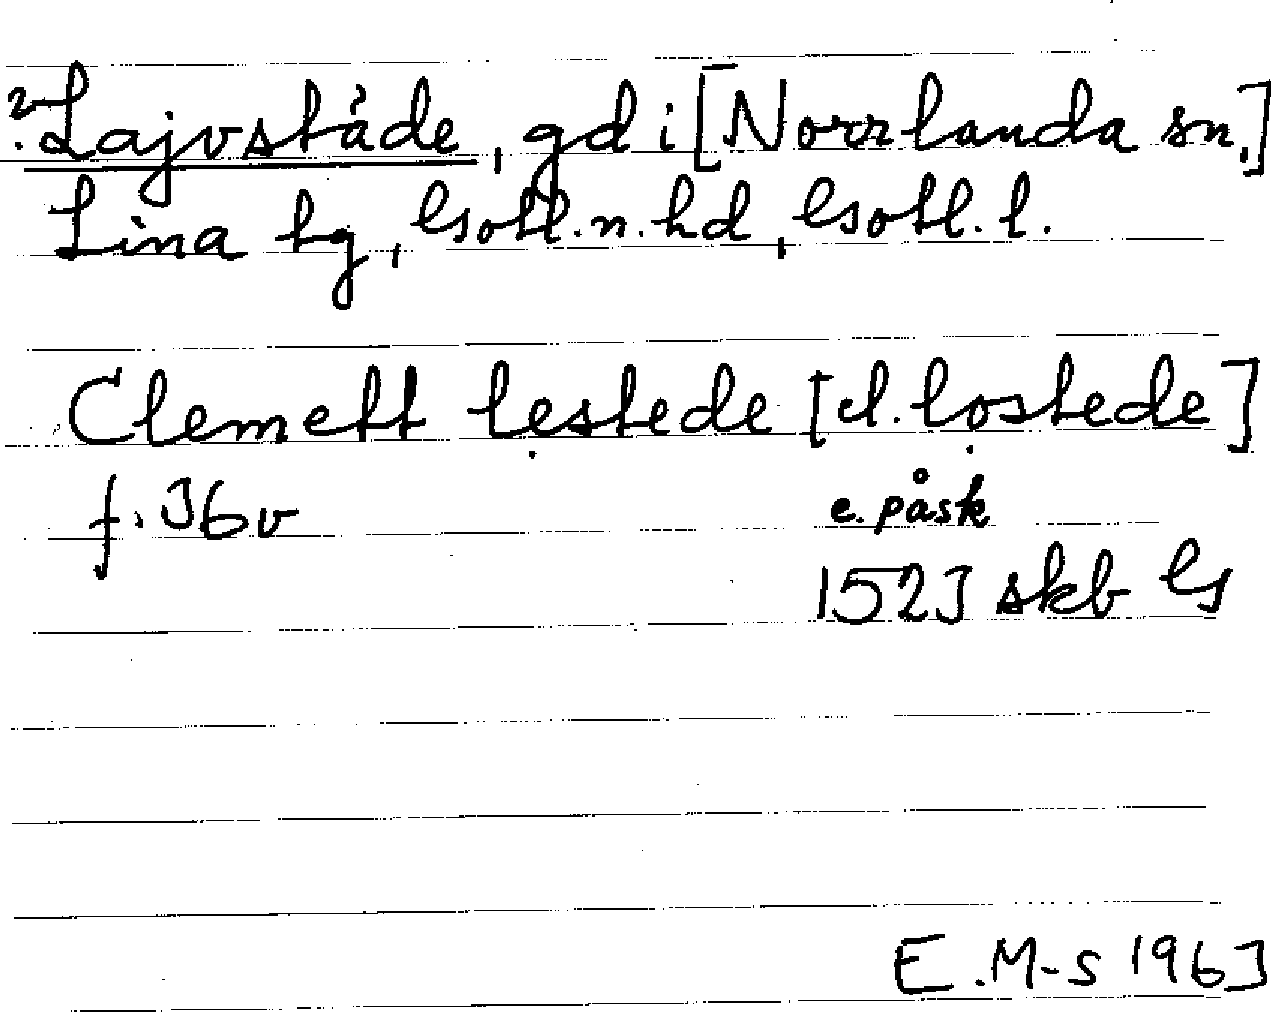 ?Lajvståde, gd i [Norrlanda sn,]
Lina tg, Gotl. n. hd, Gotl. l.
Clemett lestede [el. lostede]
f. 36v e. påsk
1523 skb G
E.M-s 1963